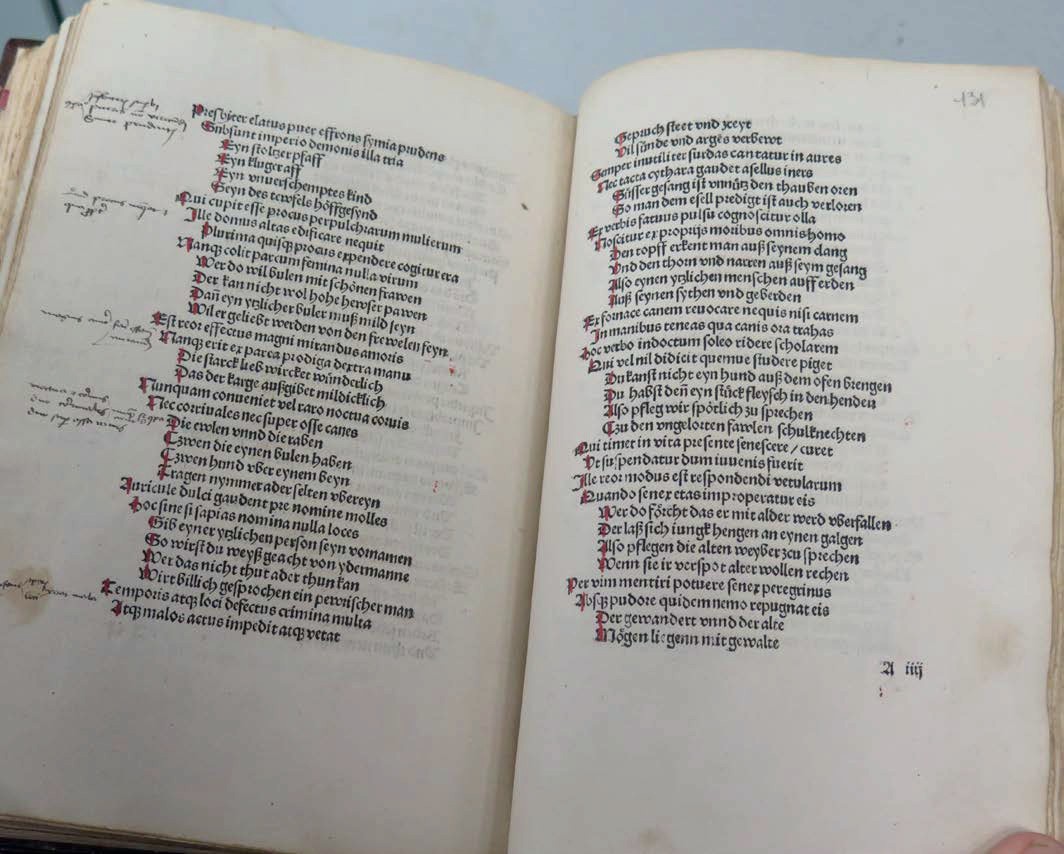 Presbyter elatus puer effrons symia prudens
Subsunt imperio demonis illa tria
Eyn stoltzer pfaff
Eyn kluger aff
Eyn vnuerschemptes kind
Seyn des tewfels höffgesynd
Qui cupit esse procus perpulchrarum mulierum
Ille domus altas edificare nequit
Plurima quisqꝫ procus expendere cogitur era
Nanqꝫ colit parcum femina nulla virum
Wer do wil bulen mit schönen frawen
Der kan nicht wol hohe hewser pawen
Dañ eyn ytzlicher buler muß mild seyn
Wil er geliebt werden von den frewelen feyn
Est reor effectus magni mirandus amoris
Nanqꝫ erit ex parca prodiga dextra manu
Die starck lieb wircket wunderlich
Das der karge außgibet mildicklich
Nunquam conueniet vel raro noctua coruis
Nec corriuales nec super osse canes
Die ewlen vnnd die raben
Czwen die eynen bulen haben
Czwen hund vber eynem beyn
Tragen nymmer ader selten vbereyn
Auricule dulci gaudent pre nomine molles
Hoc sine si sapias nomina nulla loces
Gib eyner ytzlichen person seyn vornamen
So wirst du weyß geacht von ydermanne
Wer das nicht thut ader thun kan
Wirt billich gesprochen ein pewrischer man
Temporis atqꝫ loci defectus crimina multa
Atqꝫ malos actus impedit atqꝫ vetat
131
Gepruch steet vnd zceyt
Vil sunde vnd arges verbewt
Semper inutiliter surdas cantatur in aures
Nec tacta cythara gaudet asellus iners
Süsser gesang ist vnnütz den thauben oren
So man dem esell predigt ist auch verloren
Ex verbis fatuus pulsu cognoscitur olla
Noscitur ex proprijs moribus omnis homo
Den topff erkent man auß seynem clang
Vnd den thorn vnd narren auß seym gesang
Also eynen ytzlichen menschen auff erden
Auß seynen sythen vnd geberden
Ex fornace canem reuocare nequis nisi carnem
In manibus teneas qua canis ora trahas
Hoc verbo indoctum soleo ridere scholarem
Qui vel nil didicit quemue studere piget
Du kanst nicht eyn hund auß dem ofen brengen
Du habst deñ eyn stück fleysch in den henden
Also pfleg wir spötlich zu sprechen
Czu den vngelorten fawlen schulknechten
Qui timet in vita presente senescere / curet
Vt suspendatur dum iuuenis fuerit
Ille reor modus est respondendi vetularum
Quando senex etas improperatur eis
Wer do förcht das er mit alder werd vberfallen
Der laß sich iungk hengen an eynen galgen
Also pflegen die alten weyber zcu sprechen
Wenn sie ir verspot alter wollen rechen
Per vim mentiri potuere senex peregrinus
Absqꝫ pudore quidem nemo repugnat eis
Der gewandert vnnd der alte
Mögen liegenn mit gewalte
A iiij